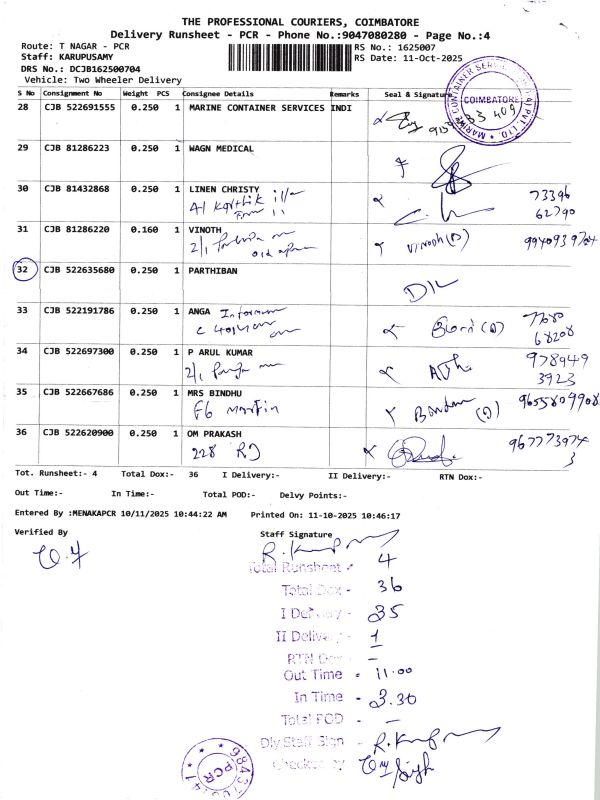 THE PROFESSIONAL COURIERS, COIMBATORE
Delivery Runsheet - PCR - Phone No.:9047080280 - Page No.:4
Route: T NAGAR - PCR
Staff: KARUPUSAMY
DRS No.: DCJB162500704
Vehicle: Two Wheeler Delivery
RS No.: 1625007
RS Date: 11-Oct-2025
S No Consignment No Weight PCS Consignee Details Remarks Seal & Signature
28 CJB 522691555 0.250 1 MARINE CONTAINER SERVICES INDI
COIMBATORE
29 CJB 81286223 0.250 1 WAGN MEDICAL
30 CJB 81432868 0.250 1 LINEN CHRISTY 73396
A1 Karthik 62790
31 CJB 81286220 0.160 1 VINOTH Vinoth (D)
2/1
32 CJB 522635680 0.250 1 PARTHIBAN
D/L
33 CJB 522191786 0.250 1 ANGA
68208
34 CJB 522697300 0.250 1 P ARUL KUMAR 978949
2/1 3923
35 CJB 522667686 0.250 1 MRS BINDHU 9655809908
F6 Martin
36 CJB 522620900 0.250 1 OM PRAKASH 967773974
228 RJ 3
Tot. Runsheet:- 4 Total Dox:- 36 I Delivery:- II Delivery:- RTN Dox:-
Out Time:- In Time:- Total POD:- Delvy Points:-
Entered By :MENAKAPCR 10/11/2025 10:44:22 AM Printed On: 11-10-2025 10:46:17
Verified By Staff Signature
Total Runsheet - 4
Total Dox - 36
I Delivery - 35
II Delivery - 1
RTN Dox - –
Out Time - 11.00
In Time - 3.30
Total POD - –
Dly.Staff Sign -
Checked by
PCR